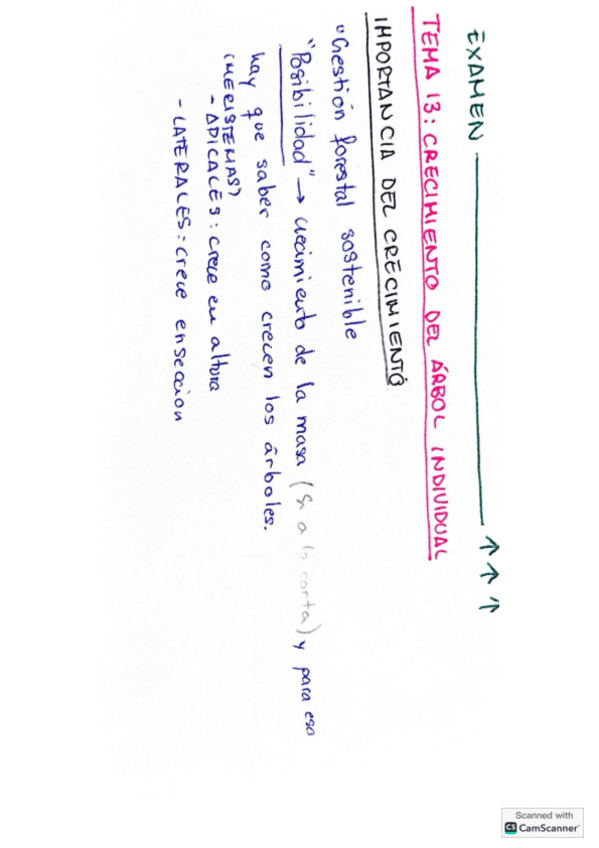 EXAMEN ↑↑↑
TEMA 13: CRECIMIENTO DEL ÁRBOL INDIVIDUAL
IMPORTANCIA DEL CRECIMIENTO
"Gestión forestal sostenible
"Posibilidad" → crecimiento de la masa (Si a la corta) y para eso
hay que saber como crecen los árboles.
(MERISTEMAS)
- APICALES: crece en altura
- LATERALES: crece en seccion
Scanned with
CS CamScanner